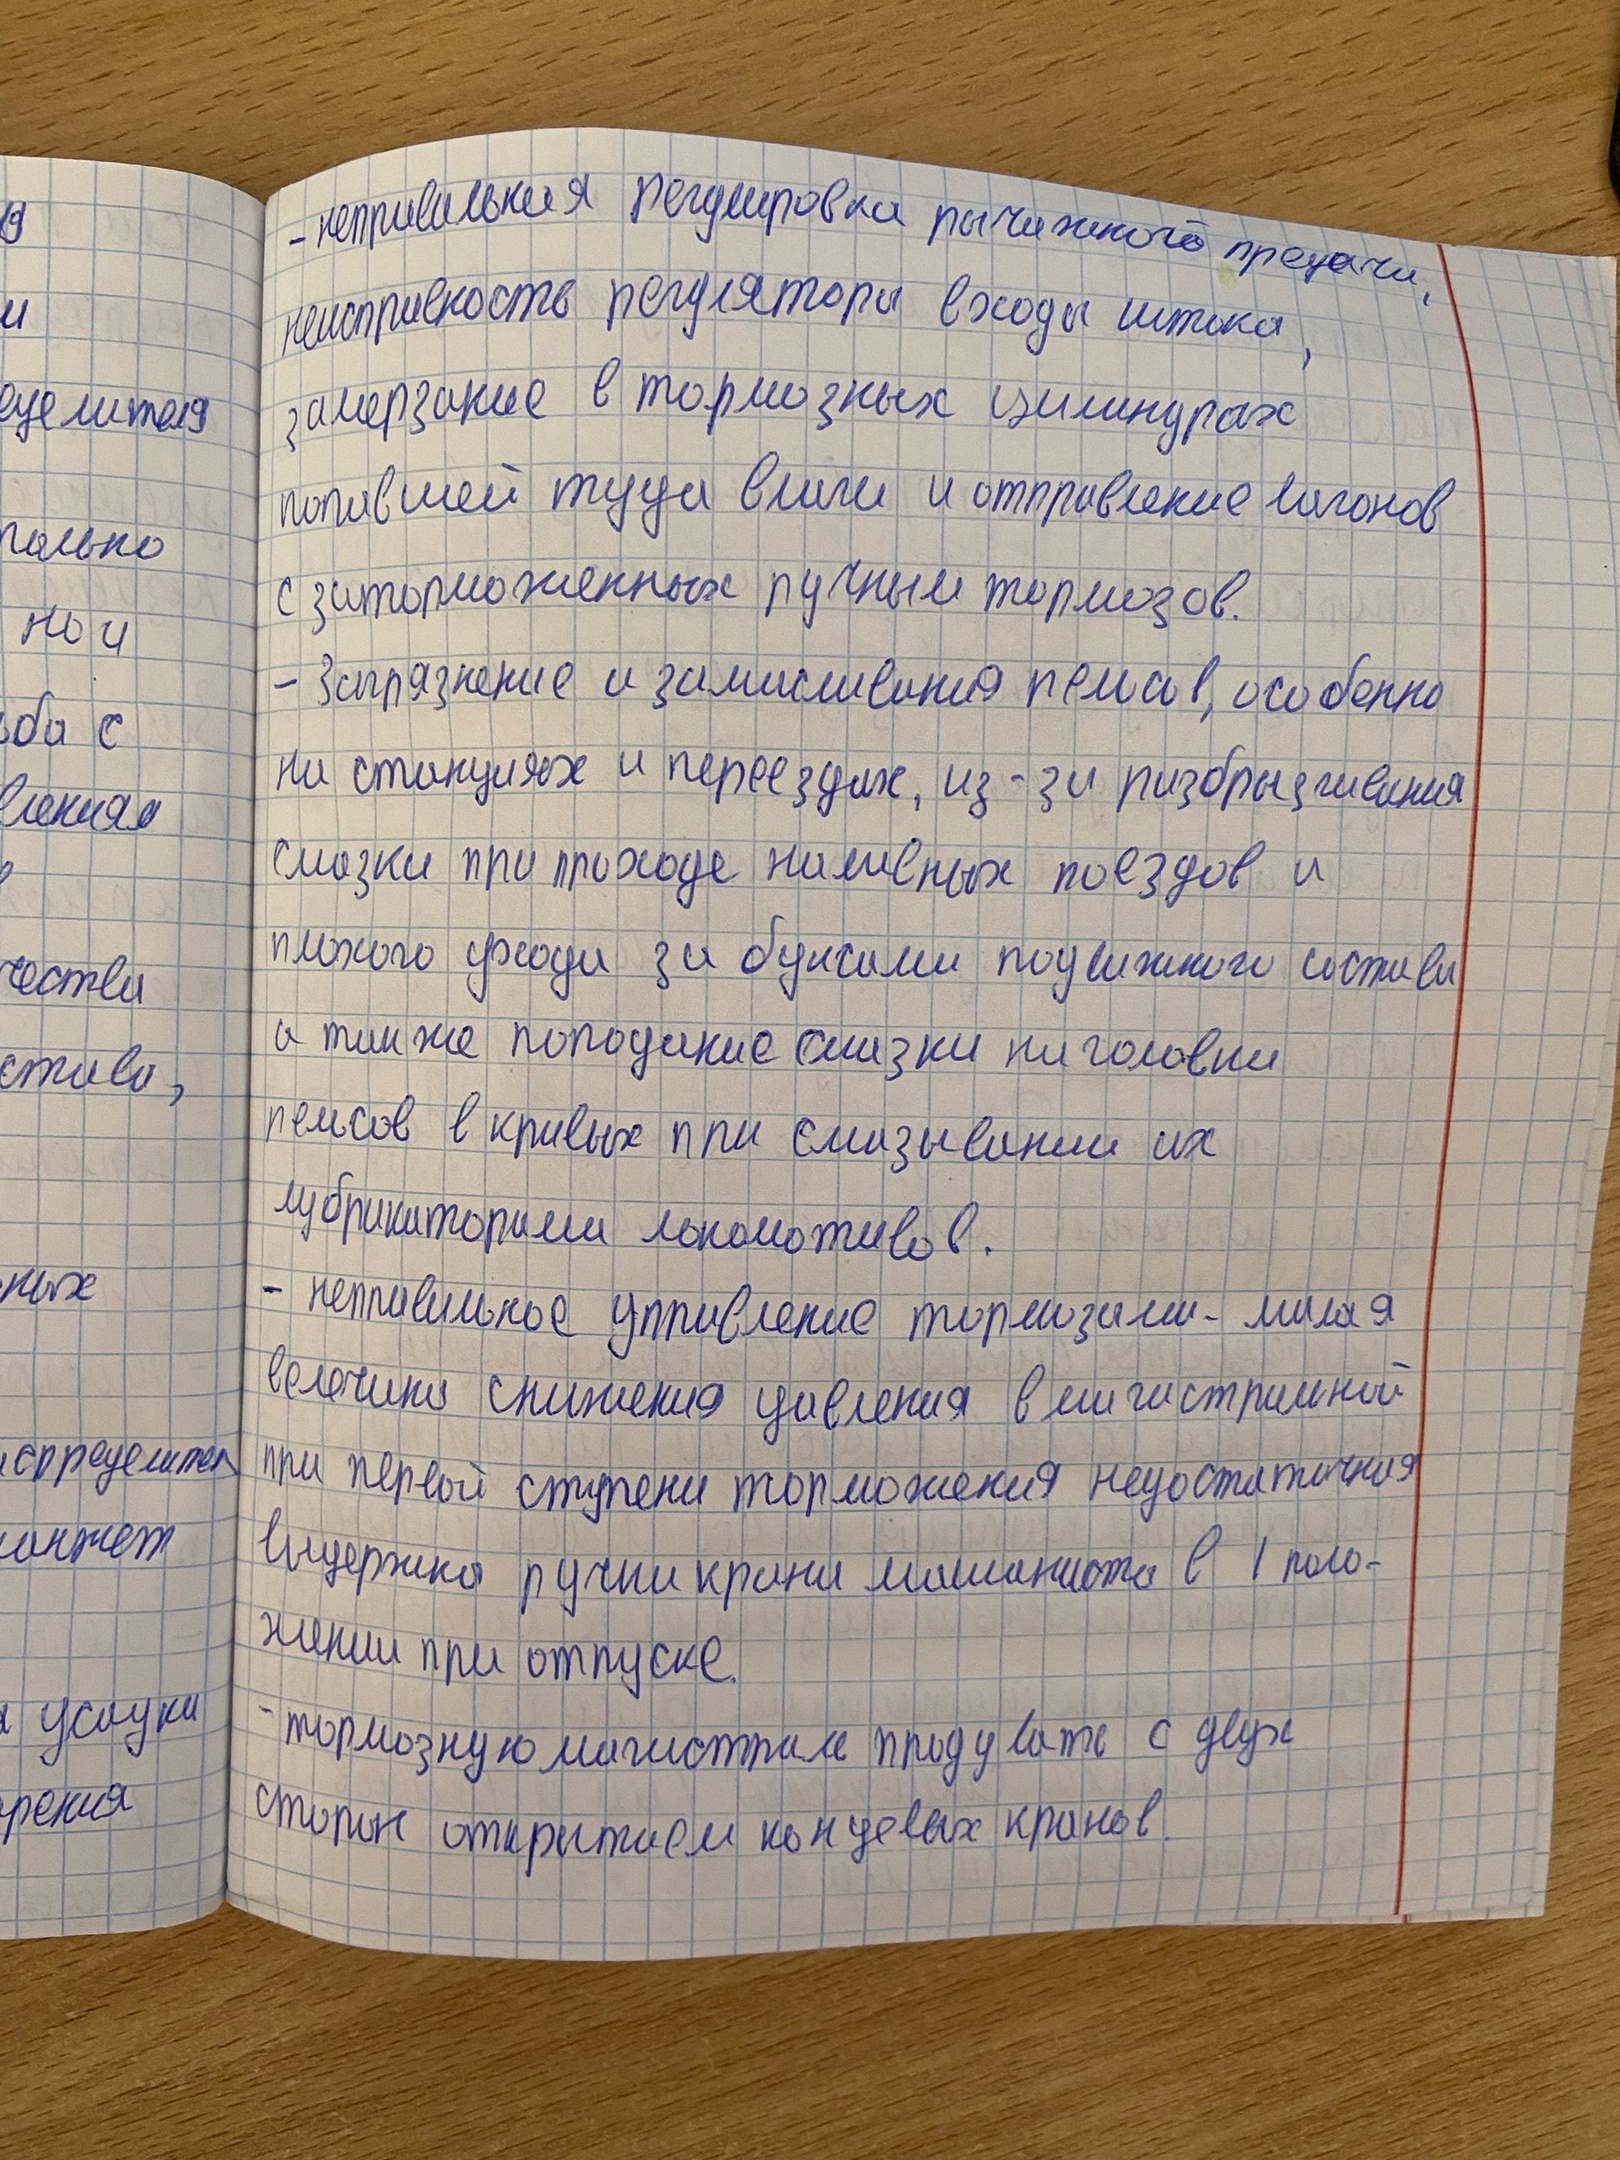 я
и
еделителя
только
но и
ьба с
вленная
в
чества
става,
ных
аспределител
манжет
я усдуки
орения
- неправильная регулировка рычажного предачи,
неисправность регулятора входы штока,
замерзание в тормозных цилиндрах
попавшей туда влаги и отправление вагонов
с заторможенных ручным тормозов.
- Загрязнение и замасливания рельсов, особенно
на станциях и переездах, из-за разбрызгивания
смазки при проходе наливных поездов и
плохого ухода за буксами подвижного состава
а также поподание смазки на головки
рельсов в кривых при смазывании их
лубрикаторами локомотивов.
- неправильное управление тормозами- малая
величина снижения давления в магистральной
при первой ступени торможения недостаточная
выдержка ручки крана машиниста в 1 поло-
жении при отпуске.
- тормозную магистраль продувать с двух
сторон открытием концевых кранов.